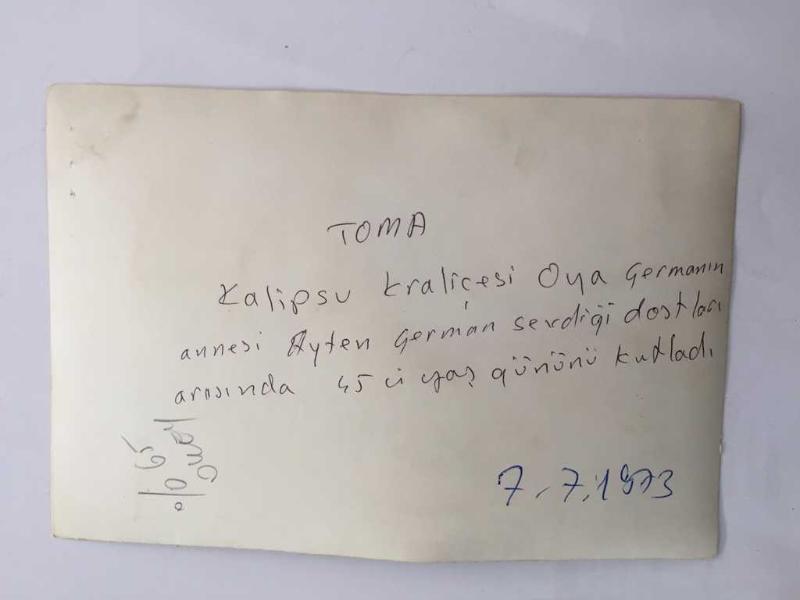 TOMA
Kalipsu kraliçesi Oya Germanın
annesi Ayten German sevdiği dostları
arasında 45 ü yaş gününü kutladı.
7.7.1973